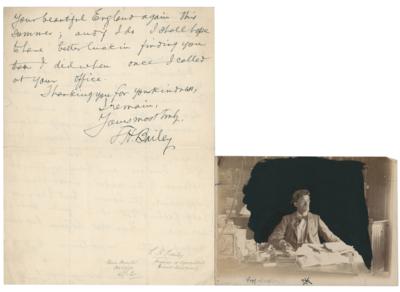 Your beautiful England again this
Summer, and if I do I shall hope
to have better luck in finding you
than I did when once I called
at your office.
Thanking you for your kindness,
I remain,
Yours most truly,
Bailey
Bailey